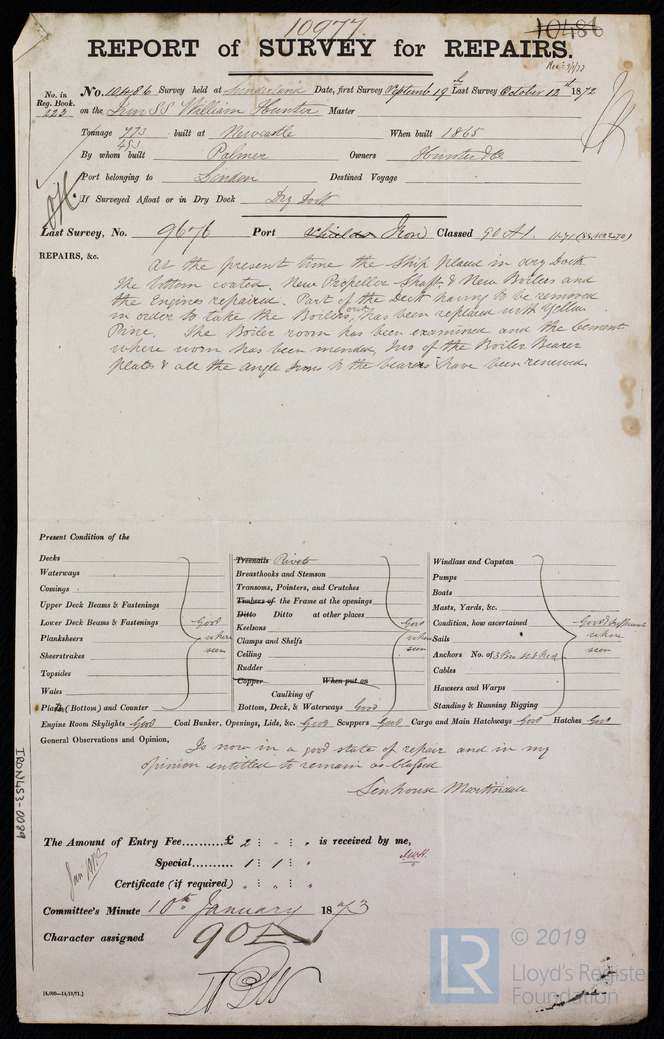 10977.
10486
REPORT of SURVEY for REPAIRS.
No. in Reg. Book. 223
No. 10486 Survey held at Sunderland Date, first Survey Septembr 19th Last Survey October 12th 1872
on the Iron SS William Hunter Master
Tonnage 773 built at Newcastle When built 1865
453
By whom built Palmer Owners Hunter & Co
Port belonging to London Destined Voyage
If Surveyed Afloat or in Dry Dock Dry Dock
Last Survey, No. 9676 Port Shields Iron Classed 90 A1.
REPAIRS, &c.
At the present time the Ship placed in dry Dock
the bottom coated. New Propeller Shaft & New Boilers and
the Engines repaired. Part of the Deck having to be removed
in order to take the Boilers out has been replaced with Yellow
Pine. The Boiler room has been examined and the Cement
where worn has been mended, Two of the Boiler Bearer
plates & all the angle Irons to the bearers have been renewed.
Present Condition of the
Decks
Waterways
Comings
Upper Deck Beams & Fastenings
Lower Deck Beams & Fastenings
Planksheers
Sheerstrakes
Topsides
Wales
Plates (Bottom) and Counter
Good where seen
Treenails Rivets
Breasthooks and Stemson
Transoms, Pointers, and Crutches
Timbers of the Frame at the openings
Ditto Ditto at other places
Keelsons
Clamps and Shelfs
Ceiling
Rudder
Copper When put on
Caulking of
Bottom, Deck, & Waterways Good
Good where seen
Windlass and Capstan
Pumps
Boats
Masts, Yards, &c.
Condition, how ascertained
Sails
Anchors No. of 3
Cables
Hawsers and Warps
Standing & Running Rigging
Good & sufficient where seen
Engine Room Skylights Good Coal Bunker, Openings, Lids, &c. Good Scuppers Good Cargo and Main Hatchways Good Hatches Good
General Observations and Opinion, Is now in a good state of repair and in my
opinion entitled to remain as classed
Senhouse Martindale
The Amount of Entry Fee..........£ 2 : " : " is received by me,
Special......... 1 : 1 : "
Certificate (if required) " : " : "
Committee's Minute 10th January 1873
Character assigned 90A
[4,000—14/10/71.]
IRON453-0089
LR
© 2019
Lloyd's Register
Foundation